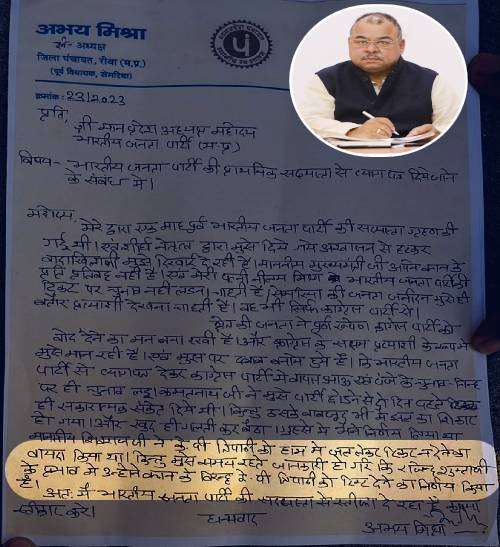 अभय मिश्रा
अध्यक्ष
जिला पंचायत, रीवा (म.प्र.)
(पूर्व विधायक, सेमरिया)
क्रमांक- 23/2023
प्रति,
श्री मान प्रदेश अध्यक्ष महोदय
भारतीय जनता पार्टी (म.प्र.)
विषय- भारतीय जनता पार्टी की प्राथमिक सदस्यता से त्याग पत्र दिये जाने
के संबंध में।
महोदय,
मेरे द्वारा एक माह पूर्व भारतीय जनता पार्टी की सदस्यता ग्रहण की
गई थी। एवं शीर्ष नेतृत्व द्वारा मुझे दिये गये आश्वासन से हटकर
वादाखिलाफी मुझे दिखाई दे रही है। माननीय मुख्यमंत्री जी अपने कथन के
प्रति नहीं है। एवं मेरी पत्नी नीलम मिश्रा भारतीय जनता पार्टी की
टिकट पर चुनाव नहीं लड़ना चाहती है। सेमरिया की जनता मुझे ही
बतौर प्रत्याशी देखना चाहती है। वह भी सिर्फ कांग्रेस पार्टी से।
की जनता ने पूर्व कांग्रेस पार्टी को
वोट देने का मन बना रखी है। और कांग्रेस के प्रत्याशी के रूप में
मुझे मान रही है। एवं मुझ पर दबाव बनाये हुये है। कि भारतीय जनता
पार्टी से त्यागपत्र देकर कांग्रेस पार्टी में वापस आऊ एवं पंजे के चुनाव चिन्ह
पर ही चुनाव लडू। कमलनाथ जी ने मुझे पार्टी छोडने से दो दिन पहले
ही सकारात्मक संकेत दिये थे। किन्तु उसके बावजूद भी मैं का शिकार
हो गया। और खुद ही गलती कर बैठा। मैंने निर्णय लिया था
माननीय जी ने के.पी. त्रिपाठी को हाथ में जल लेकर टिकट न देने का
वायदा किया था। किन्तु मुझे समय रहते जानकारी हो गई कि राजेन्द्र शुक्ला जी
के प्रभाव में उन्होंने के विरुद्ध के.पी. त्रिपाठी को टिकट देने का निर्णय लिया
है।
अतः मैं भारतीय जनता पार्टी की सदस्यता से स्तीफा दे रहा हूँ कृपया
स्वीकार करें।
धन्यवाद
अभय मिश्रा